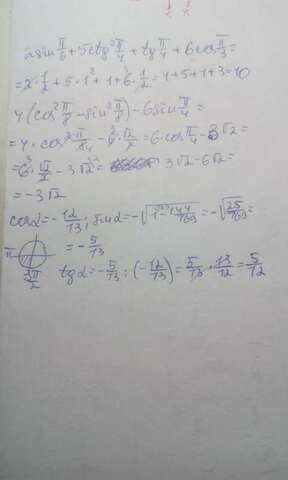 2sin π/6 + 5ctg² π/4 + tg π/4 + 6cos π/3 =
= 2 · 1/2 + 5 · 1² + 1 + 6 · 1/2 = 1 + 5 + 1 + 3 = 10
4(cos² π/8 - sin² π/8) - 6sin π/4 =
= 4 · cos 2·π/8 - 6 · √2/2 = 6 · cos π/4 - 3√2 =
= 6 · √2/2 - 3√2 = 3√2 - 6√2 =
= -3√2
cosα = -12/13; sinα = -√(1 - 144/169) = -√(25/169) =
π = -5/13
3π/2 tgα = -5/13 : (-12/13) = 5/13 · 13/12 = 5/12